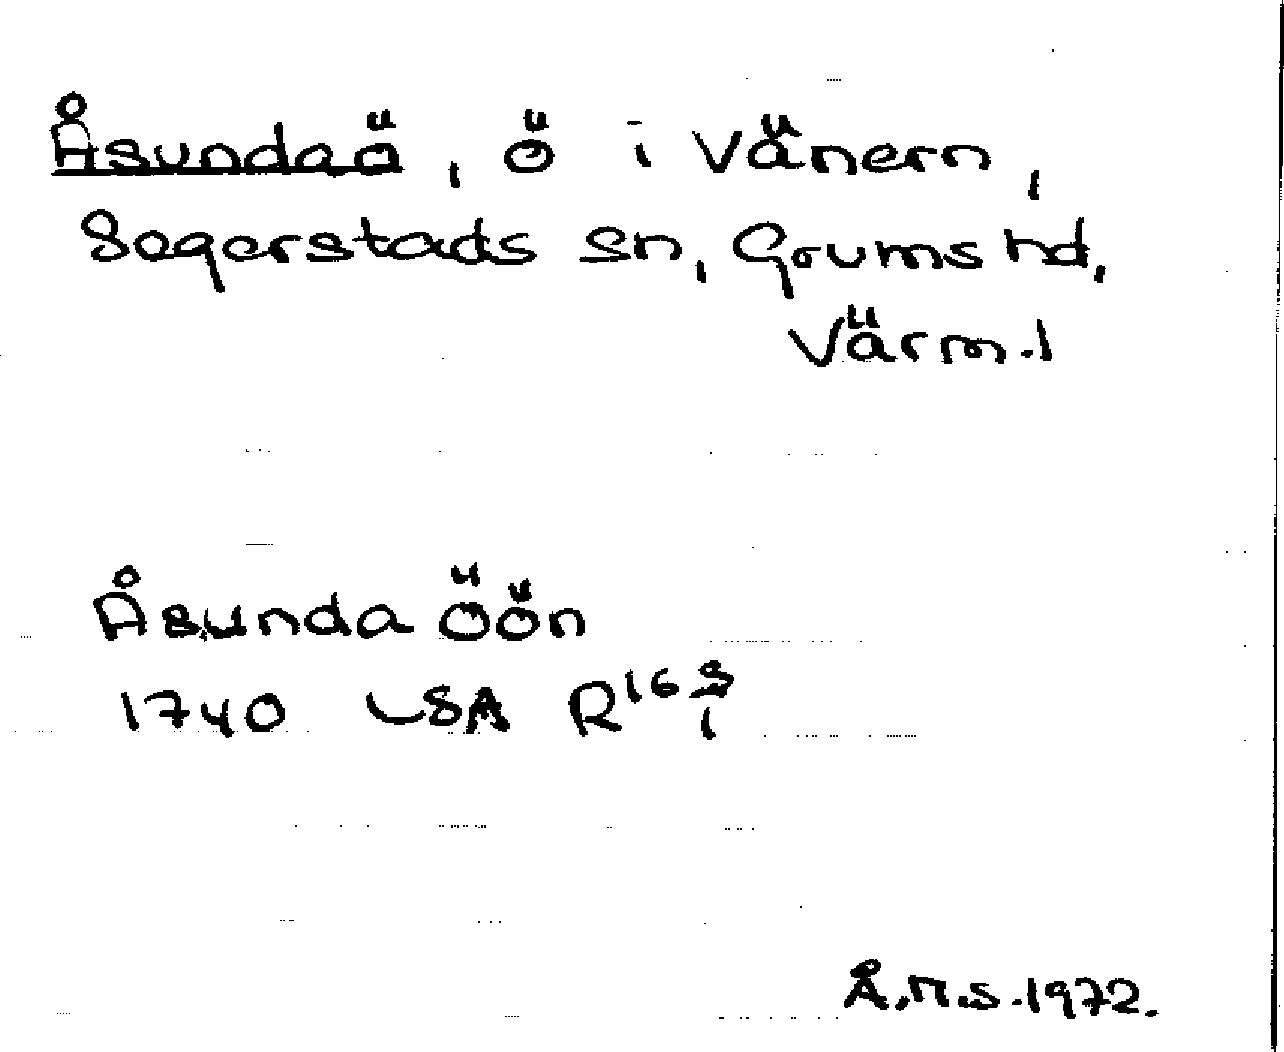 Åsundaö, ö i Vänern,
Segerstads sn, Grums hd,
Värml
Åsunda öön
1740 LSA R16 8/1
Å.M.S.1972.